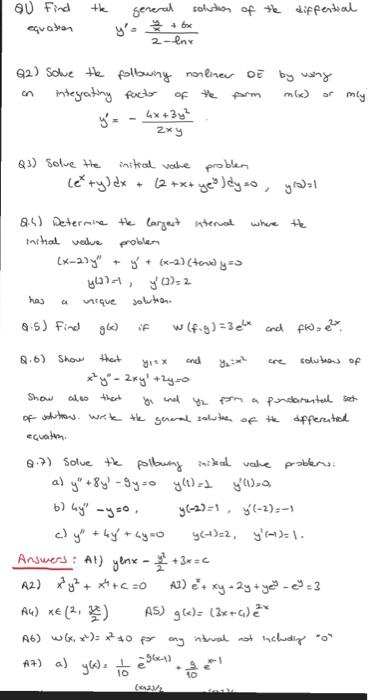 Q1) Find the general solution of the differential
equation y' = (y/x + 6x) / (2 - lnx)
Q2) Solve the following nonlinear DE by using
an integrating factor of the form m(x) or m(y)
y' = - (4x + 3y²) / (2xy)
Q3) Solve the initial value problem
(eˣ + y)dx + (2 + x + yeʸ)dy = 0, y(0) = 1
Q.4) Determine the largest interval where the
initial value problem
(x-2)y" + y' + (x-2)(tanx)y = 0
y(3) = 1, y'(3) = 2
has a unique solution.
Q.5) Find g(x) if W(f.g) = 3e⁴ˣ and f(x) = e²ˣ.
Q.6) Show that y₁ = x and y₂ = x² are solutions of
x²y" - 2xy' + 2y = 0
Show also that y₁ and y₂ form a fundamental set
of solutions. Write the general solution of the differential
equation.
Q.7) Solve the following initial value problems:
a) y" + 8y' - 9y = 0 y(1) = 1 y'(1) = 0,
b) 4y" - y = 0, y(-2) = 1, y'(-2) = -1
c) y" + 4y' + 4y = 0 y(-1) = 2, y'(-1) = 1.
Answers: A1) ylnx - y²/2 + 3x = c
A2) x³y² + x⁴ + c = 0 A3) eˣ + xy + 2y + yeʸ - eʸ = 3
A4) x∈(2, 3π/2) A5) g(x) = (3x + c₁)e²ˣ
A6) W(x, x²) = x² ≠ 0 for any interval not including "0"
A7) a) y(x) = 1/10 e^-9(x-1) + 9/10 e^x-1